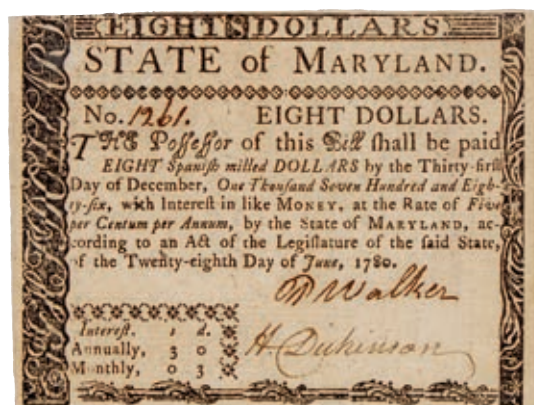 EIGHT DOLLARS.
STATE of MARYLAND.
No. 1261. EIGHT DOLLARS.
THE Poſſeſſor of this Bill ſhall be paid
EIGHT Spaniſh milled DOLLARS by the Thirty-firſt
Day of December, One Thouſand Seven Hundred and Eigh-
ty-ſix, with Intereſt in like MONEY, at the Rate of Five
per Centum per Annum, by the State of MARYLAND, ac-
cording to an Act of the Legiſlature of the ſaid State,
of the Twenty-eighth Day of June, 1780.
Walker
Intereſt. s d.
H Dickinson
Annually, 3 0
Monthly, 0 3